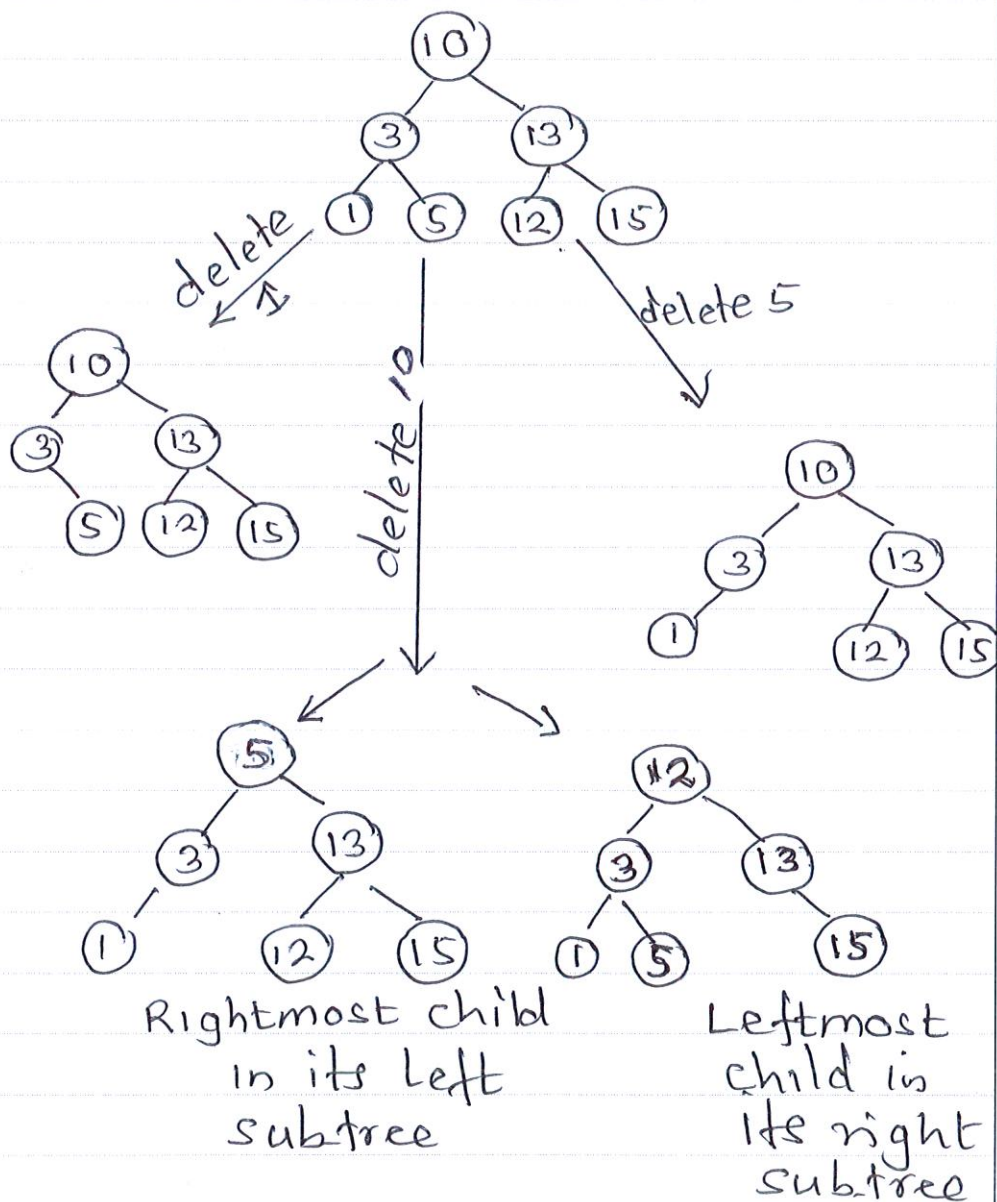 10
3 13
1 5 12 15
delete
1
delete 5
delete 10
10
3 13
5 12 15
10
3 13
1 12 15
5
3 13
1 12 15
12
3 13
1 5 15
Rightmost child
in its left
subtree
Leftmost
child in
its right
subtree